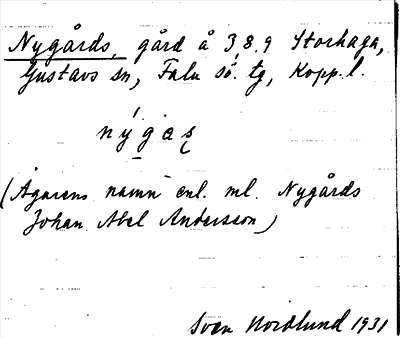 Nygårds, gård å 3, 8, 9 Storhaga,
Gustavs sn, Falu sö. tg, Kopp. l.
nýgaş
(Ägarens namn enl. ml. Nygårds
Johan Abel Andersson)
Sven Nordlund 1931